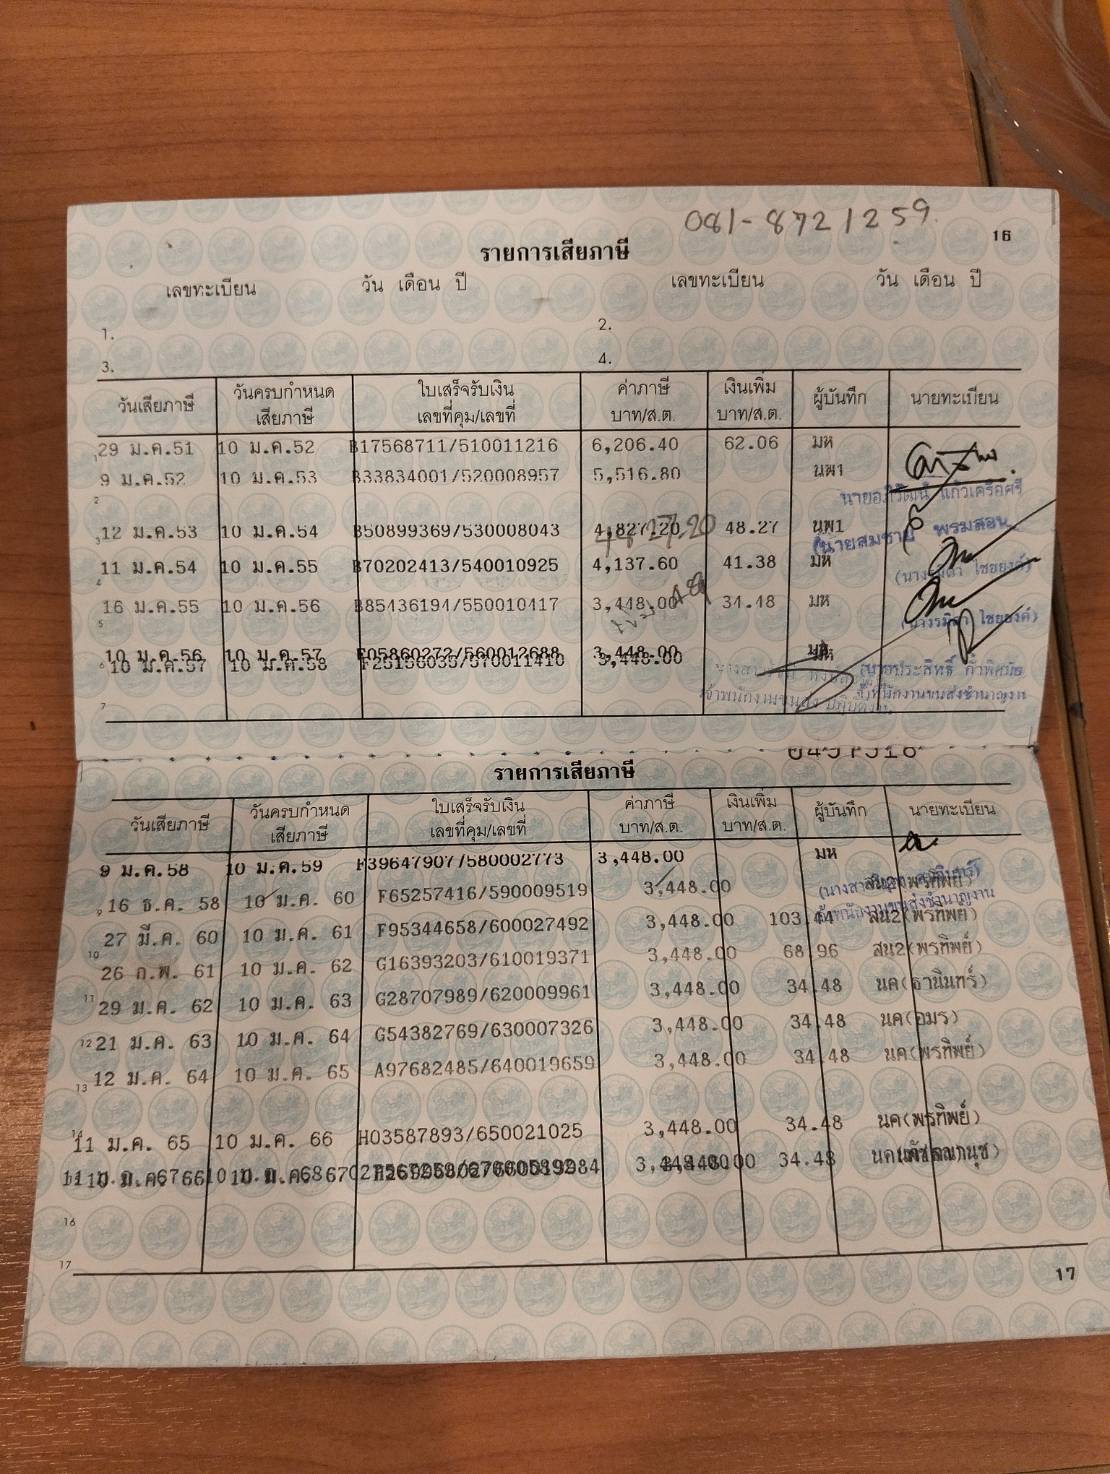 081-8721259
16
รายการเสียภาษี
เลขทะเบียน วัน เดือน ปี เลขทะเบียน วัน เดือน ปี
1. 2.
3. 4.
วันเสียภาษี วันครบกำหนดเสียภาษี ใบเสร็จรับเงิน เลขที่คุม/เลขที่ ค่าภาษี บาท/ส.ต. เงินเพิ่ม บาท/ส.ต. ผู้บันทึก นายทะเบียน
1 29 ม.ค.51 10 ม.ค.52 B17568711/510011216 6,206.40 62.06 มห
9 ม.ค.52 10 ม.ค.53 B33834001/520008957 5,516.80 นพ1
2 นายอภิวัฒน์ แก้วเครือศรี
3 12 ม.ค.53 10 ม.ค.54 B50899369/530008043 4,827.20 48.27 นพ1
(นายสมชาย พรมสอน
11 ม.ค.54 10 ม.ค.55 B70202413/540010925 4,137.60 41.38 มห
4 ไชยยงค์)
16 ม.ค.55 10 ม.ค.56 B85436194/550010417 3,448.00 34.48 มห
5 ไชยยงค์)
10 ม.ค.56 10 ม.ค.57 F05860272/560012688 3,448.00
6 10 ม.ค.57 10 ม.ค.58 F25156035/570011410 3,448.00 มห
นายประสิทธิ์
เจ้าพนักงานขนส่งชำนาญงาน
7
รายการเสียภาษี
วันเสียภาษี วันครบกำหนดเสียภาษี ใบเสร็จรับเงิน เลขที่คุม/เลขที่ ค่าภาษี บาท/ส.ต. เงินเพิ่ม บาท/ส.ต. ผู้บันทึก นายทะเบียน
9 ม.ค.58 10 ม.ค.59 F39647907/580002773 3,448.00 มห
9 16 ธ.ค. 58 10 ม.ค. 60 F65257416/590009519 3,448.00 สน2(พรทิพย์)
เจ้าพนักงานขนส่งชำนาญงาน
27 มี.ค. 60 10 ม.ค. 61 F95344658/600027492 3,448.00 103.44 สน2(พรทิพย์)
10 26 ก.พ. 61 10 ม.ค. 62 G16393203/610019371 3,448.00 68.96 สน2(พรทิพย์)
11 29 ม.ค. 62 10 ม.ค. 63 G28707989/620009961 3,448.00 34.48 นค(ธานินทร์)
12 21 ม.ค. 63 10 ม.ค. 64 G54382769/630007326 3,448.00 34.48 นค(อมร)
13 12 ม.ค. 64 10 ม.ค. 65 A97682485/640019659 3,448.00 34.48 นค(พรทิพย์)
14 11 ม.ค. 65 10 ม.ค. 66 H03587893/650021025 3,448.00 34.48 นค(พรทิพย์)
34.48
16
17
17